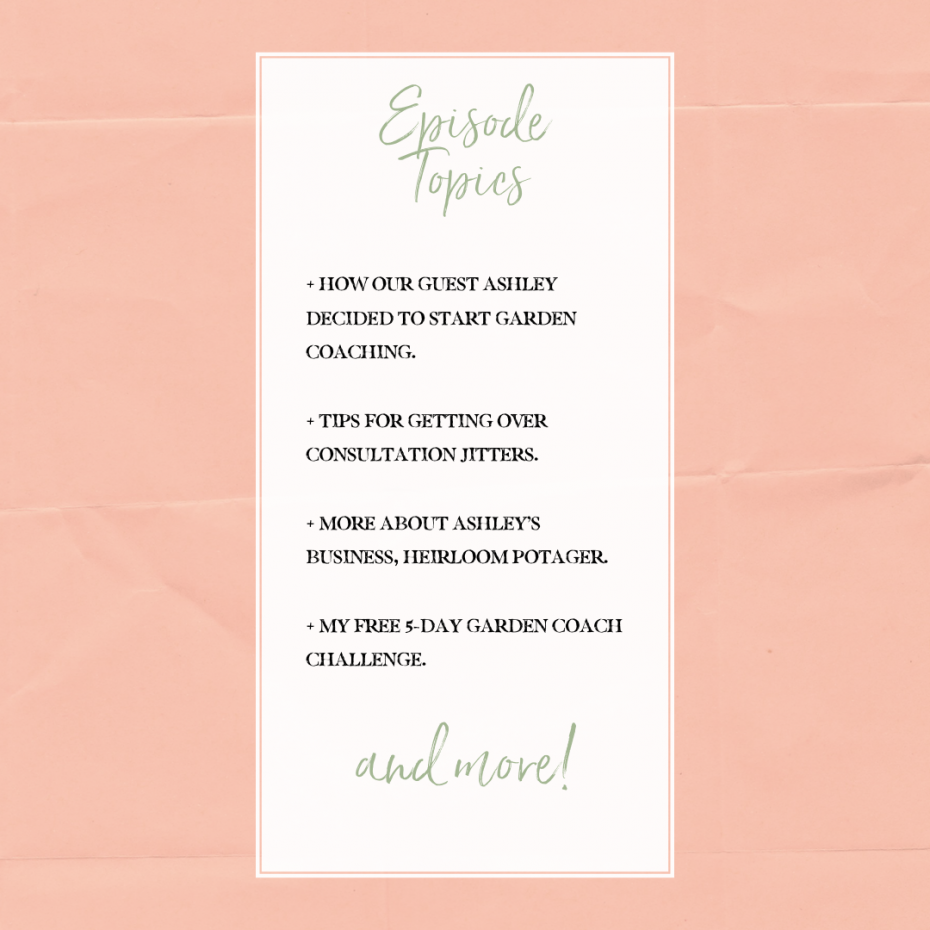 Episode
Topics
+ HOW OUR GUEST ASHLEY
DECIDED TO START GARDEN
COACHING.
+ TIPS FOR GETTING OVER
CONSULTATION JITTERS.
+ MORE ABOUT ASHLEY'S
BUSINESS, HEIRLOOM POTAGER.
+ MY FREE 5-DAY GARDEN COACH
CHALLENGE.
and more!